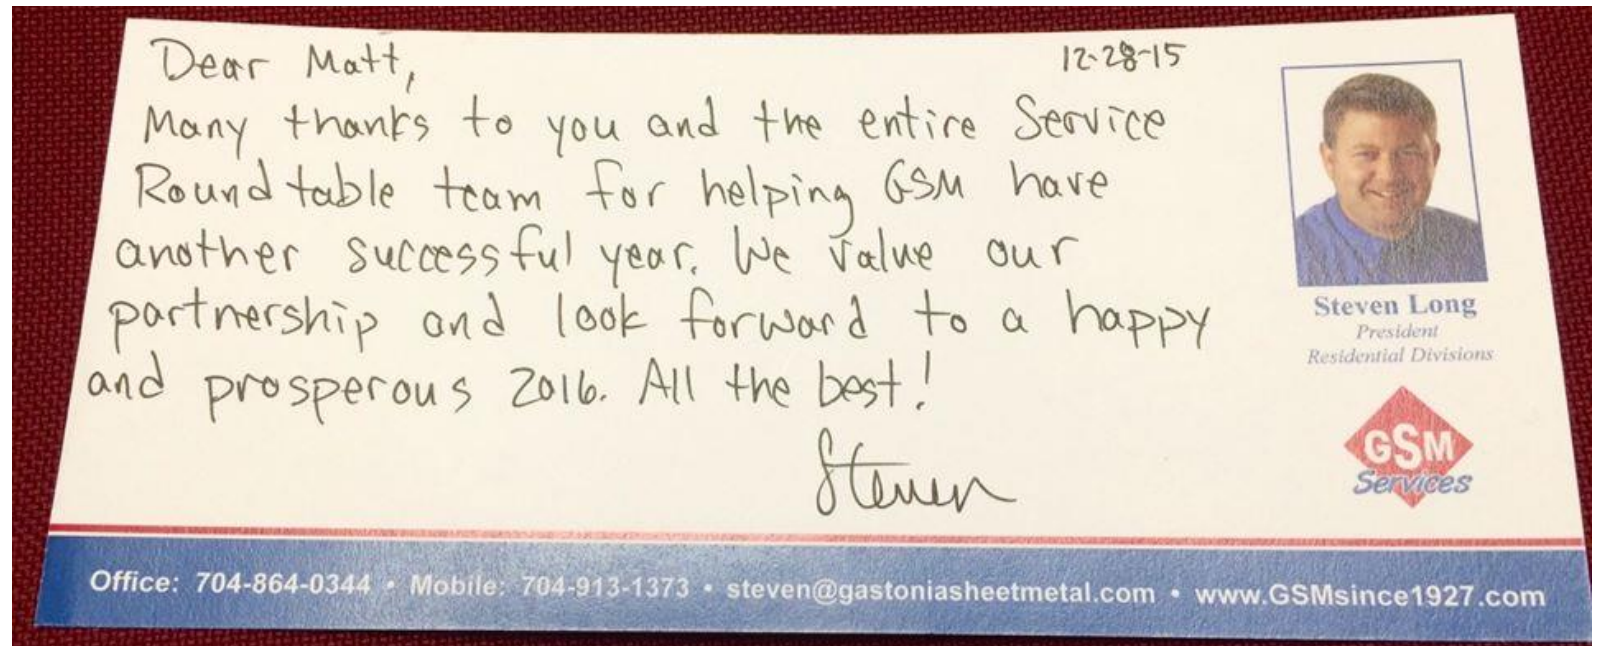 Dear Matt,
12-28-15
Many thanks to you and the entire Service
Roundtable team for helping GSM have
another successful year. We value our
partnership and look forward to a happy
and prosperous 2016. All the best!
Steven
Steven Long
President
Residential Divisions
GSM
Services
Office: 704-864-0344 • Mobile: 704-913-1373 • steven@gastoniasheetmetal.com • www.GSMsince1927.com